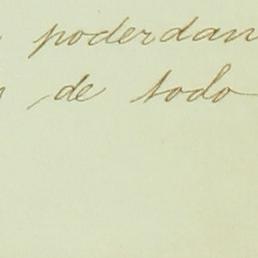 poderdan
de todo